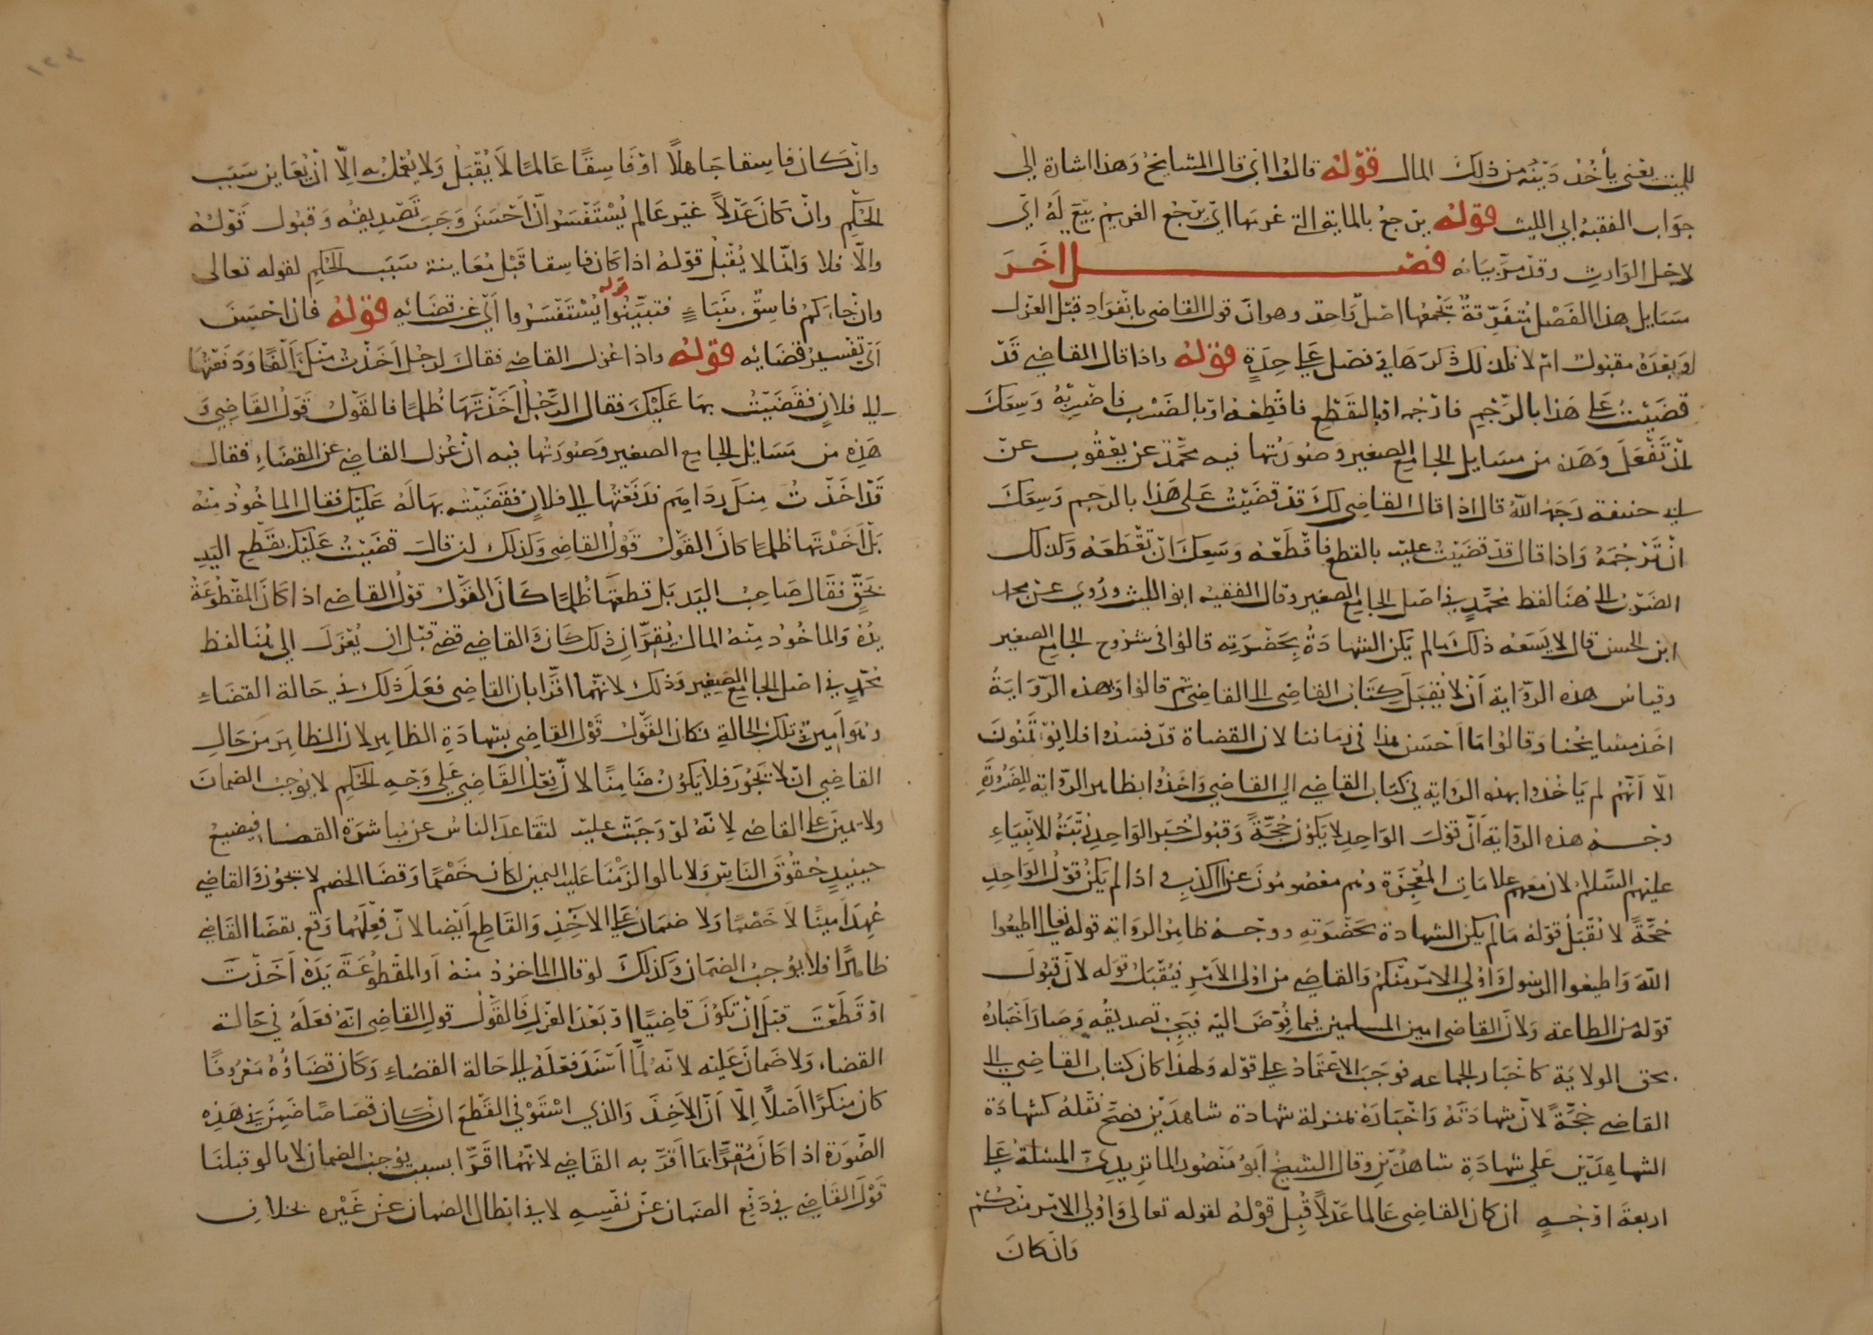 للميت يعني يأخذ دينه من ذلك المال قوله قالوا اي قال المشايخ وهذا اشارة الى
جواب الفقيه ابي الليث قوله يرجع بالماية التي غرمها اي يرجع الغريم بيع له اي
لاجل الوارث وقد مر بيانه فصل اخر
مسايل هذا الفصل متفرقة يجمعها اصل واحد وهو ان قول القاضي بانفراد قبل العزل
وبعده مقبول ام لا فلذلك ذكرها في فصل على حدة قوله واذا قال القاضي قد
قضيت على هذا بالرجم فارجمه او بالقطع فاقطعه او بالضرب فاضربه وسعك
ان تفعل وهذه من مسايل الجامع الصغير وصورتها فيه محمد عن يعقوب عن
ابي حنيفة رحمه الله قال اذا قال القاضي لك قد قضيت على هذا بالرجم وسعك
ان ترجمه واذا قال قد قضيت عليه بالقطع فاقطعه وسعك ان تقطعه وكذلك
الضرب الى هنا لفظ محمد في اصل الجامع الصغير وقال الفقيه ابو الليث وروي عن محمد
ابن الحسن قال لا يسعه ذلك ما لم يكن الشهادة بحضرته قالوا في شروح الجامع الصغير
وقياس هذه الرواية ان لا يقبل كتاب القاضي الى القاضي ثم قالوا وبهذه الرواية
اخذ مشايخنا وقالوا ما احسن هذا في زماننا لان القضاة قد فسدوا فلا يؤتمنون
الا انهم لم ياخذوا بهذه الرواية في كتاب القاضي الى القاضي واخذوا بظاهر الرواية للضرورة
وجه هذه الرواية ان قول الواحد لا يكون حجة وقبول خبر الواحد رتبة الانبياء
عليهم السلام لان معهم علامات المعجزة وهم معصومون عن الكذب فاذا لم يكن قول الواحد
حجة لا تقبل قوله ما لم يكن الشهادة بحضرته ووجه ظاهر الرواية قوله تعالى اطيعوا
الله واطيعوا الرسول واولي الامر منكم والقاضي من اولى الامر فيقبل قوله لان قبول
قوله من الطاعة ولان القاضي امين المسلمين فيما فوض اليه فيجب تصديقه وصار اخباره
بحق الولاية كاخبار الجماعه فوجب الاعتماد على قوله ولهذا كان كتاب القاضي الى
القاضي حجة لان شهادته واخباره بمنزلة شهادة شاهدين فصح نقله كشهادة
الشاهدين على شهادة شاهدين وقال الشيخ ابو منصور الماتريدي المسئلة على
اربعة اوجه ان كان القاضي عالما عدلا قبل قوله لقوله تعالى واولي الامر منكم
وان كان
وان كان فاسقا جاهلا او فاسقا عالما لا يقبل ولا يعمل به الا ان يعاين سبب
الحكم وان كان عدلا غير عالم يستفسر ان احسن وجب تصديقه وقبول قوله
والا فلا وانما لا يقبل قوله اذا كان فاسقا قبل معاينة سبب الحكم لقوله تعالى
وان جاءكم فاسق بنباء فتبينوا قوله يستفسروا اي عن قضائه قوله فان احسن
اي تفسير قضائه قوله واذا عزل القاضي فقال لرجل اخذت منك الفا ودفعتها
الى فلان فقضيت بها عليك فقال الرجل اخذتها ظلما فالقول قول القاضي و
هذه من مسايل الجامع الصغير وصورتها فيه ان عزل القاضي عن القضاء فقال
قد اخذت منك دراهم فدفعتها الى فلان فقضيت بها له عليك فقال الماخوذ منه
بل اخذتها ظلما كان القول قول القاضي وكذلك لو قال قضيت عليك بقطع اليد
بحق فقال صاحب اليد بل قطعتها ظلما كان القول قول القاضي اذا كان المقطوعة
يده والماخوذ منه المال يقر ان ذلك كان والقاضي قضى قبل ان يعزل الى هنا لفظ
محمد في اصل الجامع الصغير وذلك لانهما اقرا بان القاضي فعل ذلك في حالة القضاء
وهو امين في تلك الحالة فكان القول قول القاضي بشهادة الظاهر لان الظاهر من حال
القاضي ان لا يجور فلا يكون ضامنا لان فعل القاضي على وجه الحكم لا يوجب الضمان
ولا يمين على القاضي لانه لو وجبت عليه لتقاعد الناس عن مباشرة القضا فيضيع
حينيذ حقوق الناس ولانا لو الزمنا عليه اليمين لكان خصما وقضا الخصم لا يجوز والقاضي
عهد امينا لا خصما ولا ضمان على الاخذ والقاطع ايضا لان فعلهما وقع بقضا القاضي
ظاهرا فلا يوجب الضمان وكذلك لو قال الماخوذ منه او المقطوعة يده اخذت
او قطعت قبل ان تكون قاضيا او بعد العزل فالقول قول القاضي انه فعله في حالة
القضاء ولا ضمان عليه لانه لما اسند فعله الى حالة القضاء وكان قضاؤه معروفا
كان منكرا اصلا الا ان الاخذ والذي استوفى القطع ان كان قصاصا ضمن في هذه
الصورة اذا كان مقرا بما اقر به القاضي لانهما اقرا بسبب يوجب الضمان لانا لو قبلنا
قول القاضي في دفع الضمان عن نفسه لا في ابطال الضمان عن غيره بخلاف